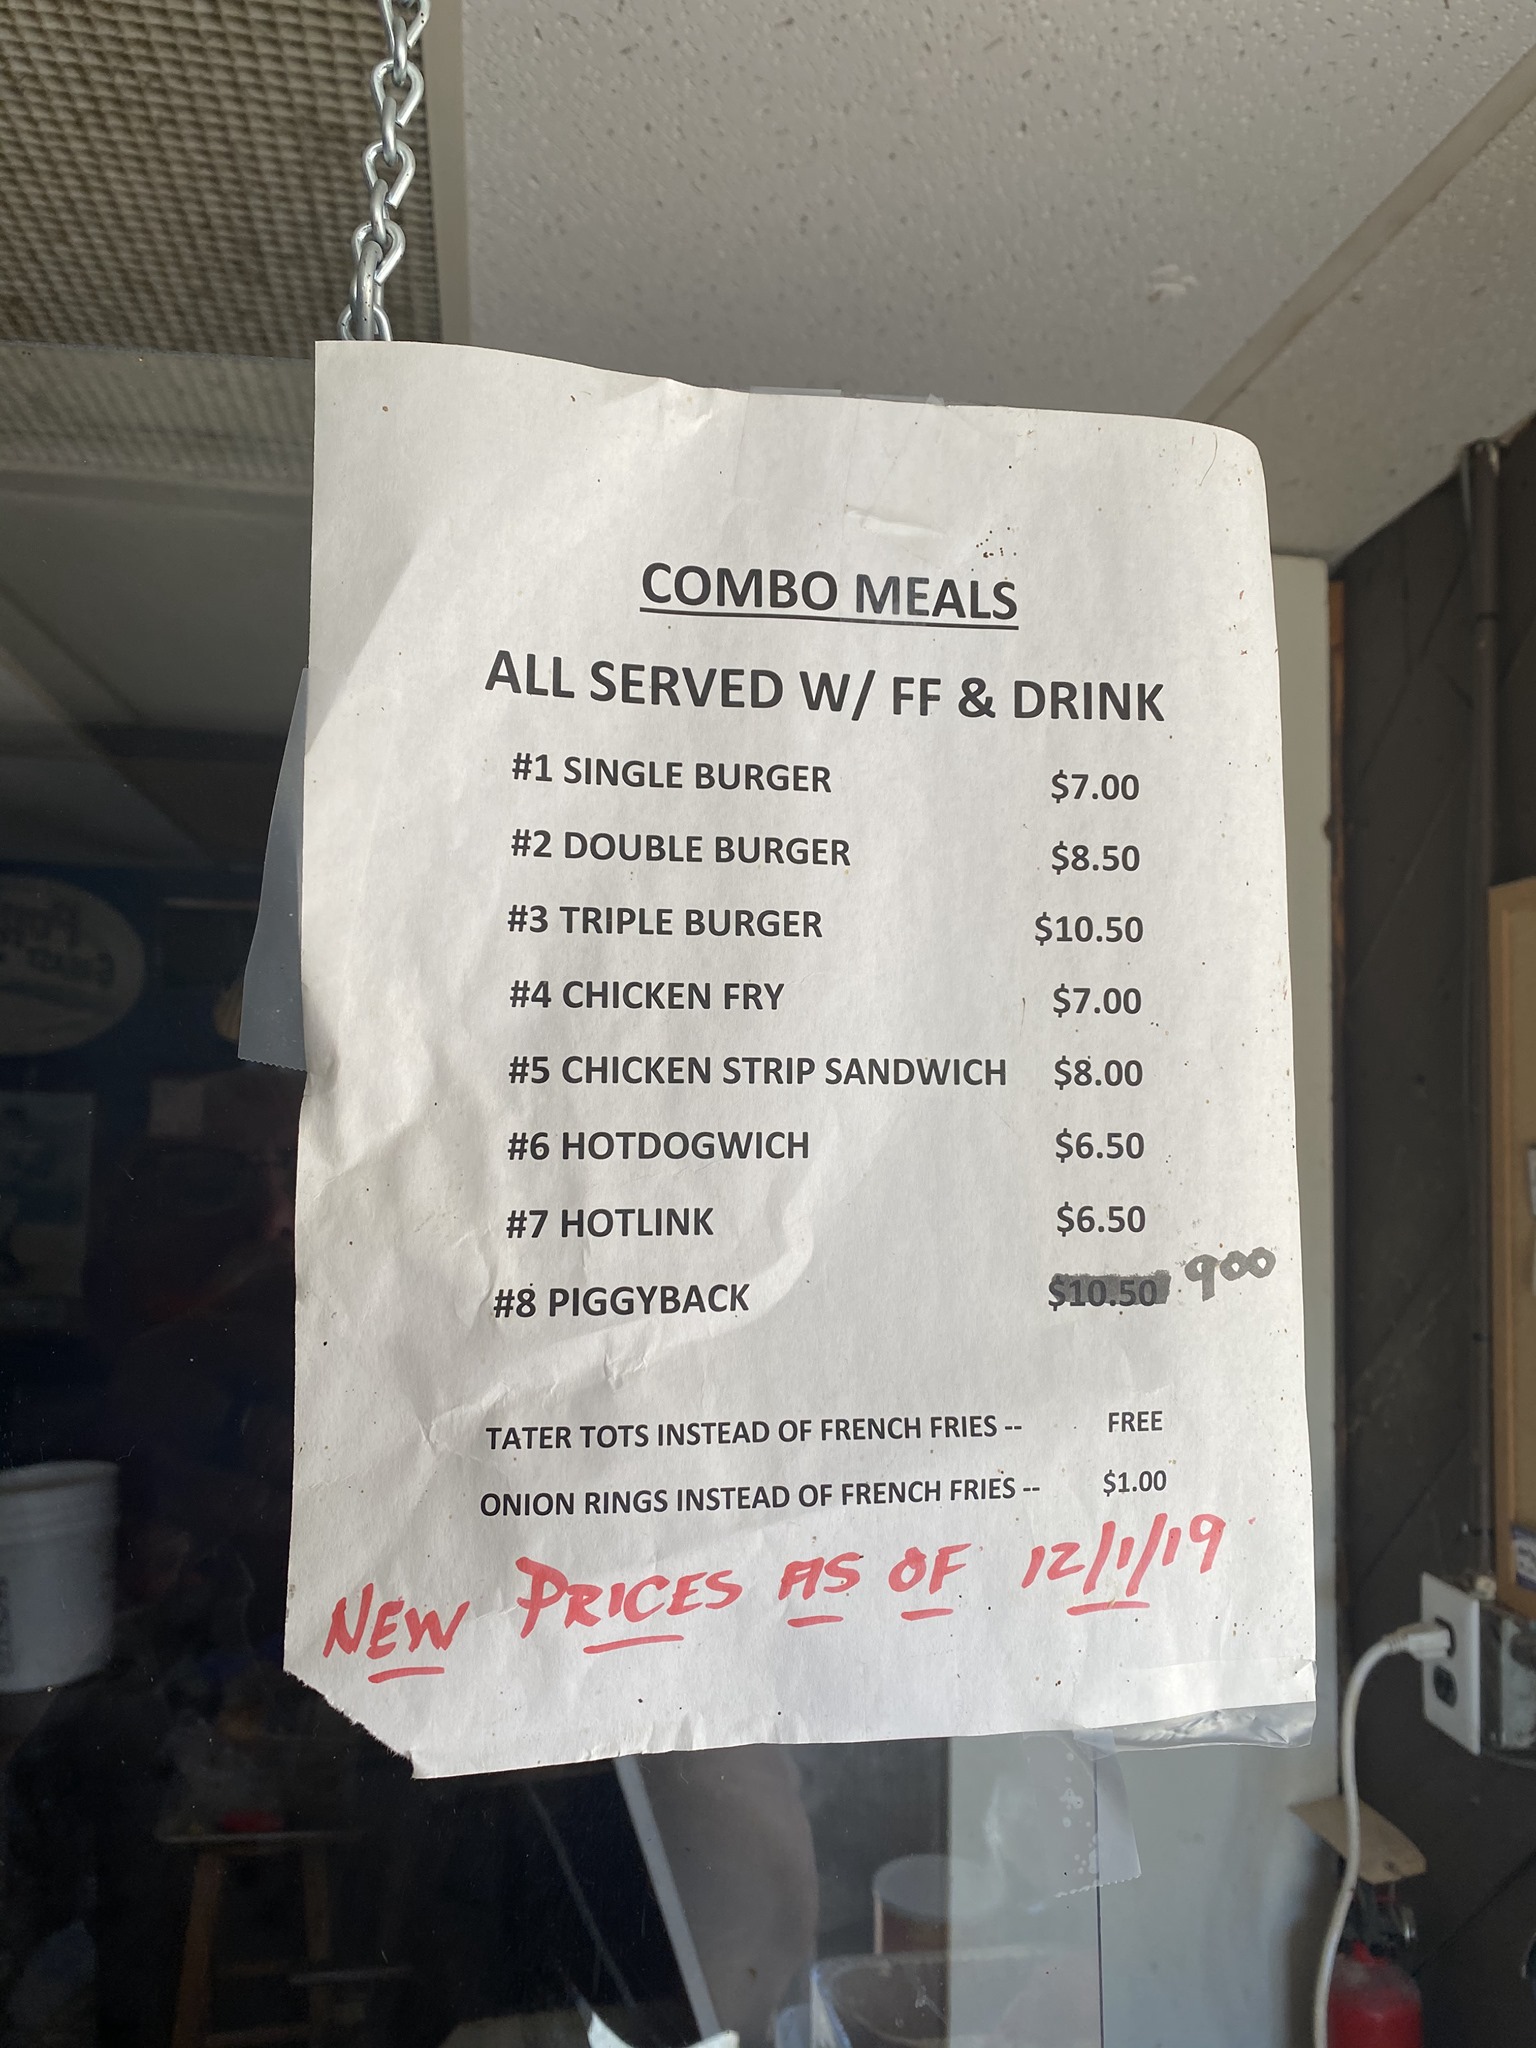 COMBO MEALS
ALL SERVED W/ FF & DRINK
#1 SINGLE BURGER $7.00
#2 DOUBLE BURGER $8.50
#3 TRIPLE BURGER $10.50
#4 CHICKEN FRY $7.00
#5 CHICKEN STRIP SANDWICH $8.00
#6 HOTDOGWICH $6.50
#7 HOTLINK $6.50
#8 PIGGYBACK $10.50 900
TATER TOTS INSTEAD OF FRENCH FRIES -- FREE
ONION RINGS INSTEAD OF FRENCH FRIES -- $1.00
NEW PRICES AS OF 12/1/19